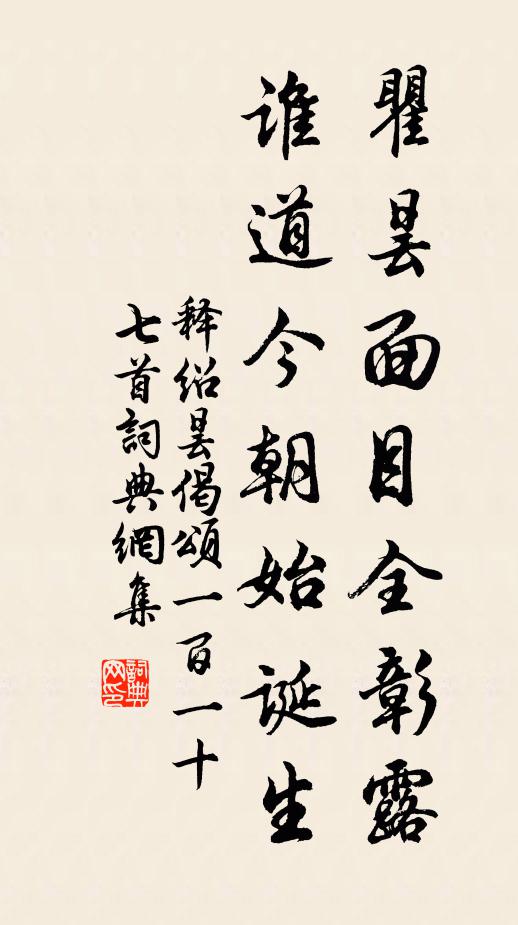 瞿昙面目全彰露
谁道今朝始誕生
释绍昙偈頌一百一十
七首詞典網集
詞典网印